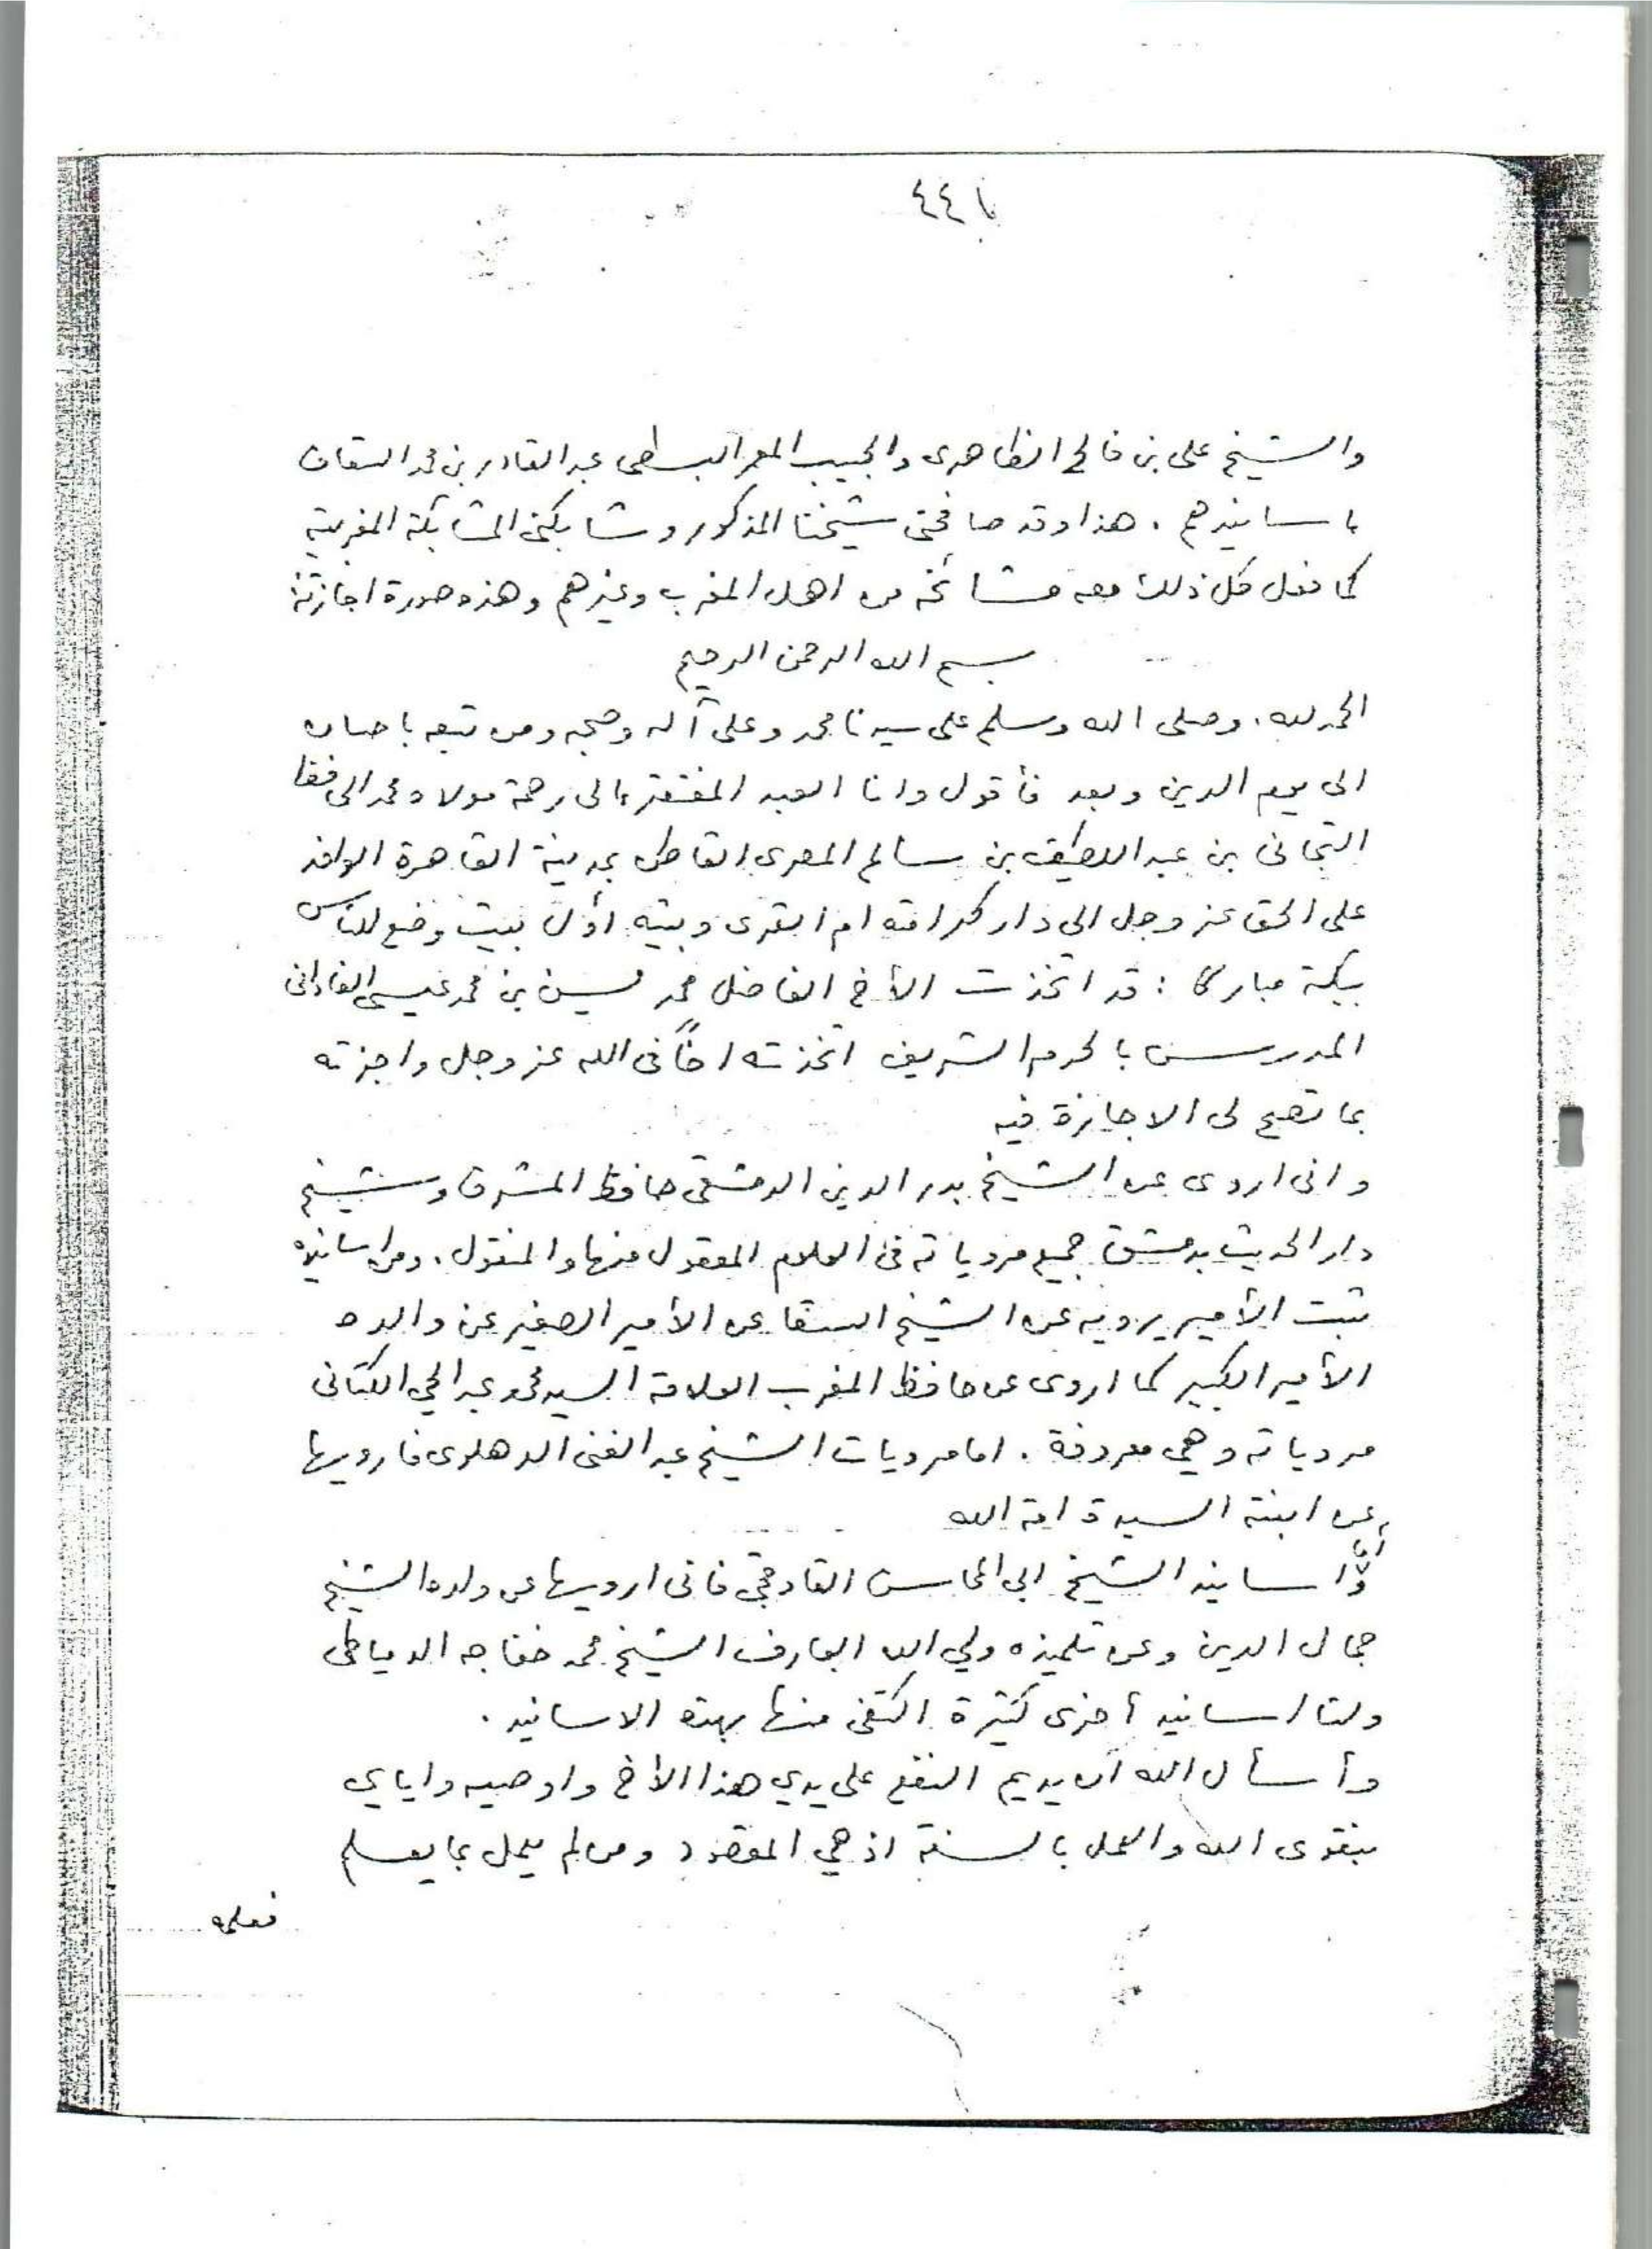 ٤٤٨
والشيخ على بن فالح الظاهرى والحبيب المعمر البسطى عبد القادر بن محمد السقاف
باسانيدهم . هذا وقد صافحنى شيخنا المذكور وشابكنى المشابكة المغربية
كما فعل كل ذلك معه مشائخه من اهل المغرب وغيرهم وهذه صورة اجازته
بسم الله الرحمن الرحيم
الحمد لله . وصلى الله وسلم على سيدنا محمد وعلى آله وصحبه ومن تبعه باحسان
الى يوم الدين وبعد فأقول وانا العبد المفتقر الى رحمة مولاه محمد الحافظ
التجانى بن عبد اللطيف بن سالم المصرى القاطن بمدينة القاهرة الوافد
على الحق عز وجل الى دار كرامته ام القرى وبيته أول بيت وضع للناس
ببكة مباركا : قد اتخذت الأخ الفاضل محمد يسين بن محمد عيسى الفادانى
المدرس بالحرم الشريف اتخذته اخاً فى الله عز وجل واجزته
بما تصح لى الاجازة فيه
وانى اروى عن الشيخ بدر الدين الدمشقى حافظ المشرق وشيخ
دار الحديث بدمشق جميع مروياته فى العلوم المعقول منها والمنقول . ومن اسانيده
ثبت الأمير يرويه عن الشيخ السقا عن الأمير الصغير عن والده
الأمير الكبير كما اروى عن حافظ المغرب العلامة السيد محمد عبد الحي الكتانى
مروياته وهي معروفة . اما مرويات الشيخ عبد الغنى الدهلوى فارويها
عن ابنته السيدة امة الله
وأما اسانيد الشيخ ابي المحاسن القاوقجي فانى ارويها عن ولده الشيخ
جمال الدين وعن تلميذه ولي الله العارف الشيخ محمد خفاجه الدمياطى
ولنا اسانيد أخرى كثيرة اكتفى منها بهذه الاسانيد .
وأسأل الله أن يديم النفع على يدي هذا الأخ واوصيه واياي
بتقوى الله والعمل بالسنة اذ هي المقصود ومن لم يعمل بما يعلم
فعلمه